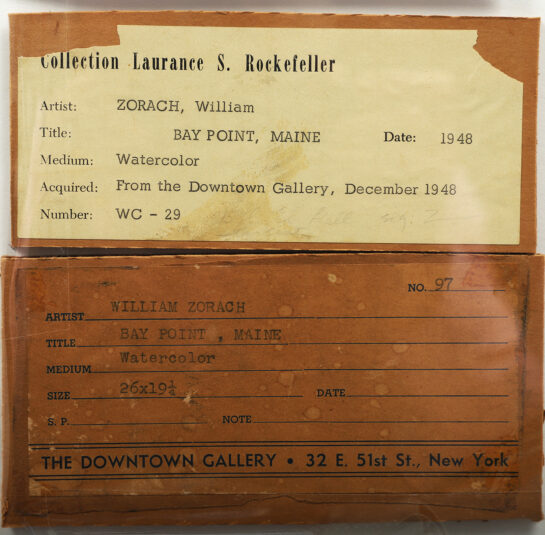 Collection Laurance S. Rockefeller
Artist: ZORACH, William
Title: BAY POINT, MAINE Date: 1948
Medium: Watercolor
Acquired: From the Downtown Gallery, December 1948
Number: WC - 29
NO. 97
ARTIST WILLIAM ZORACH
TITLE BAY POINT , MAINE
MEDIUM Watercolor
SIZE 26x19½ DATE
S. P. NOTE
THE DOWNTOWN GALLERY • 32 E. 51st St., New York